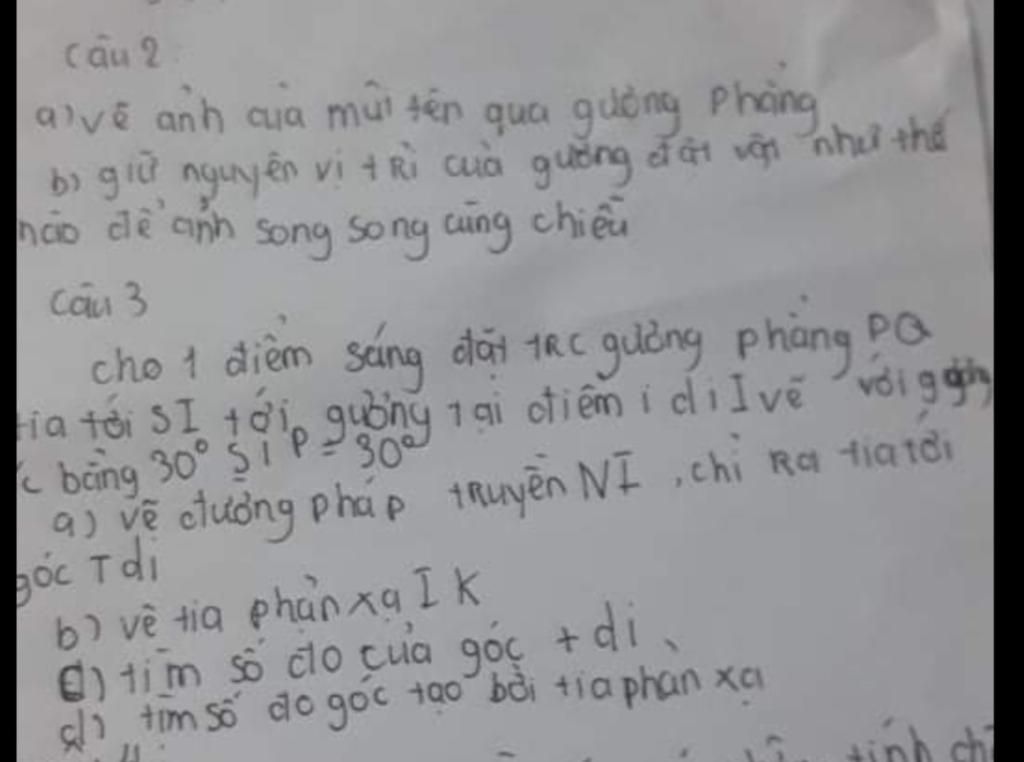 Câu 2
a) vẽ ảnh của mũi tên qua gương phẳng
b) giữ nguyên vị tRí của gương đặt vật như thế
nào để ảnh song song cùng chiều
Câu 3
cho 1 điểm sáng đặt tRc gương phẳng PQ
tia tới SI tới gương tại điểm i di I vẽ với gương
bằng 30° SIP = 30°
a) vẽ đường pháp tRuyền NI, chỉ Ra tia tới
góc T di
b) vẽ tia phản xạ IK
c) tìm số đo của góc t di
d) tìm số đo góc tạo bởi tia phản xạ
tính